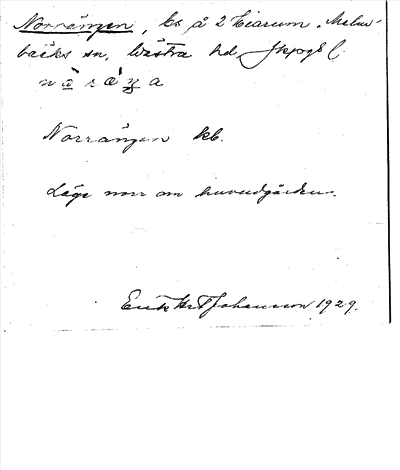 Norrängen, ls å 2 Hiarum, Malm-
bäcks sn, Västra hd, Jkpgs l.
Norrängen kb.
Läge norr om huvudgården.
Erik H T Johansson 1929.